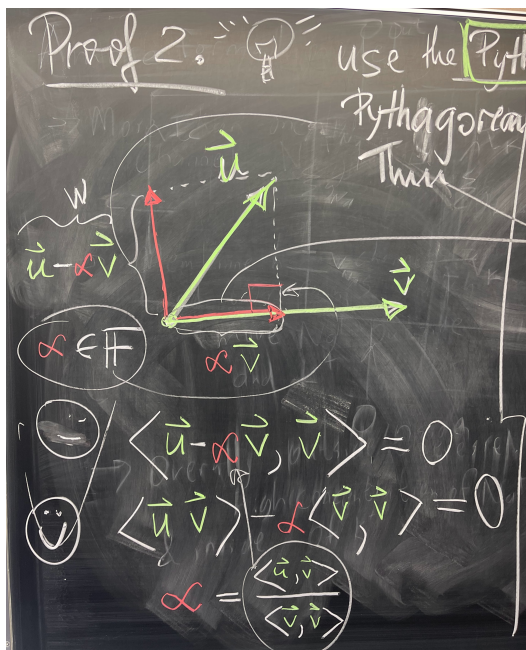 Proof 2.
use the Pyth
Pythagorean
Thm
u⃗
w
u⃗ - αv⃗
v⃗
α ∈ 𝔽
αv⃗
⟨u⃗ - αv⃗, v⃗⟩ = 0
⟨u⃗ v⃗⟩ - α⟨v⃗, v⃗⟩ = 0
α = ⟨u⃗, v⃗⟩ / ⟨v⃗, v⃗⟩